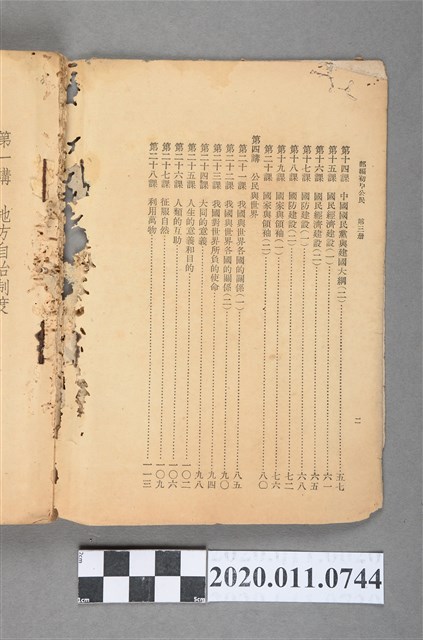 部編初中公民　第三册
二
第十四課　中國國民黨與建國大綱(二)……五七
第十五課　國民經濟建設(一)……六一
第十六課　國民經濟建設(二)……六五
第十七課　國防建設(一)……六八
第十八課　國防建設(二)……七二
第十九課　國家與領袖(一)……七六
第二十課　國家與領袖(二)……八〇
第四講　公民與世界
第二十一課　我國與世界各國的關係(一)……八五
第二十二課　我國與世界各國的關係(二)……九〇
第二十三課　我國對世界所負的使命……九四
第二十四課　大同的意義……九八
第二十五課　人生的意義和目的……一〇二
第二十六課　人類的互助……一〇六
第二十七課　征服自然……一〇九
第二十八課　利用萬物……一一三
第一講　地方自治制度
2cm
1cm
5cm
2020.011.0744